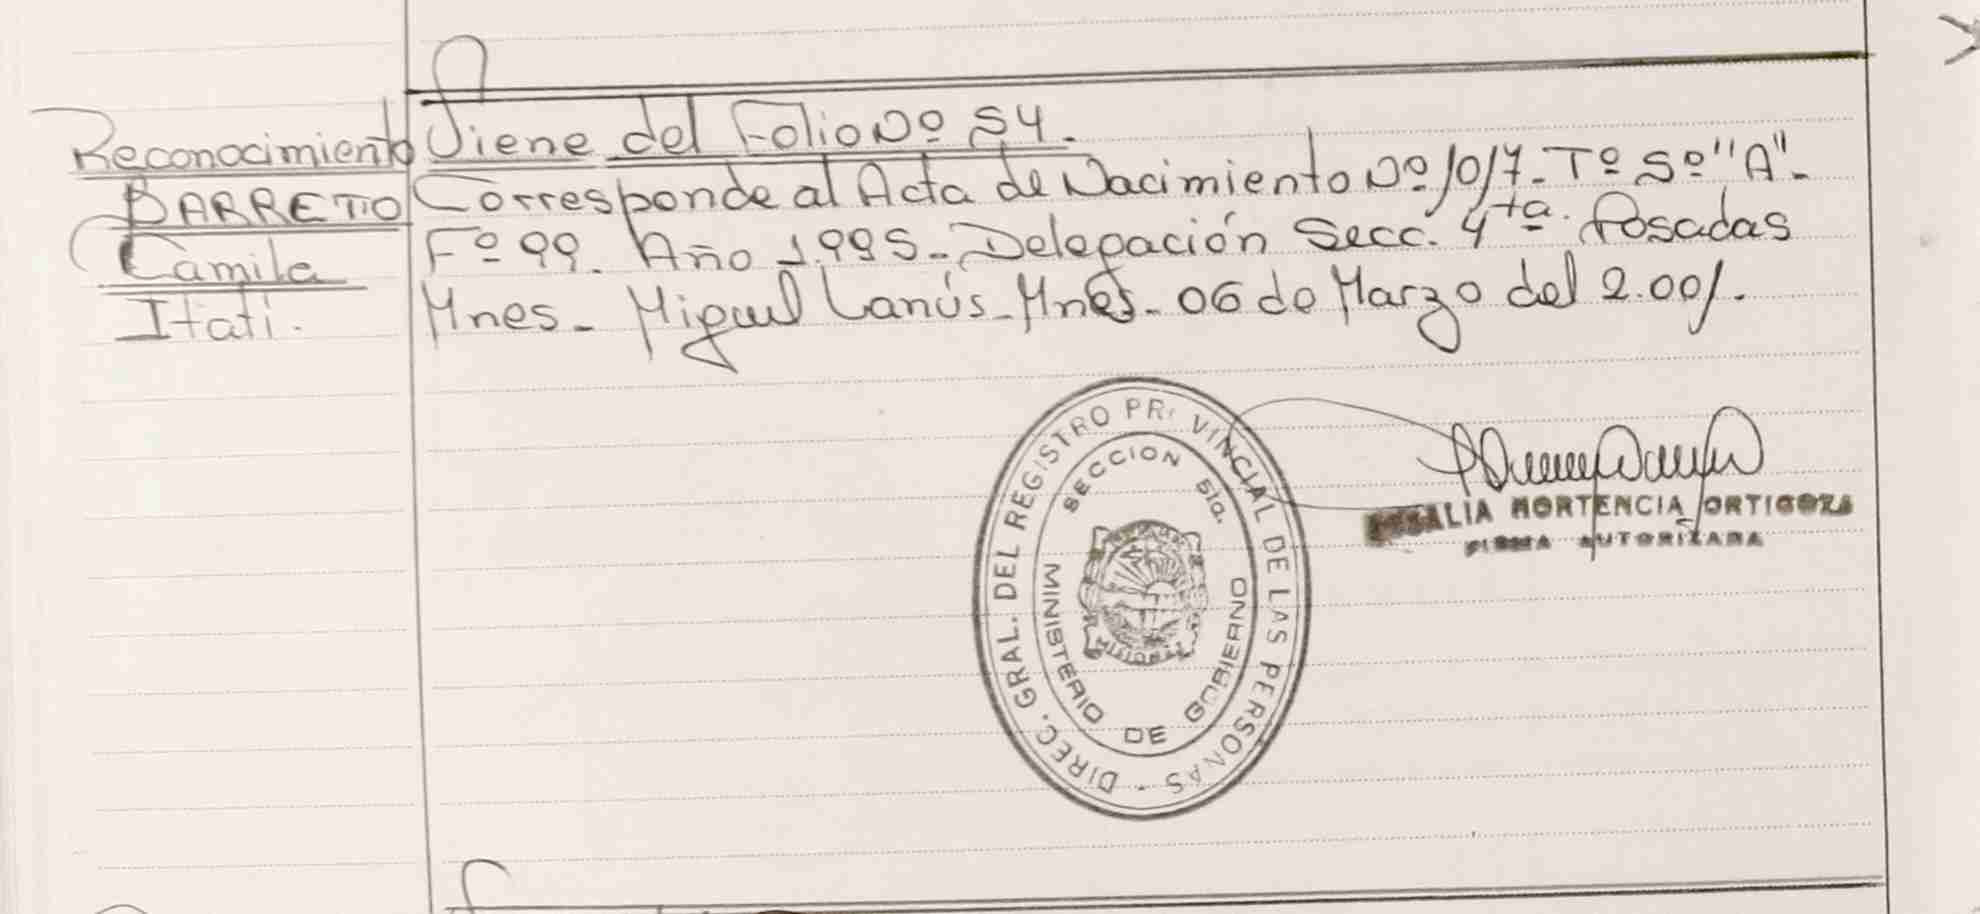 Reconocimiento
BARRETO
Camila
Itatí.
Viene del Folio Nº 54.
Corresponde al Acta de Nacimiento Nº 1017. Tº 5º "A".
Fº 99. Año 1.995. Delegación Secc. 4ta. Posadas
Mnes. Miguel Lanús. Mnes. 06 de Marzo del 2.001.
DIREC. GRAL. DEL REGISTRO PR VINCIAL DE LAS PERSONAS -
SECCION 5ta.
MINISTERIO DE GOBIERNO
HORTENCIA ORTIGOZA
FIRMA AUTORIZADA